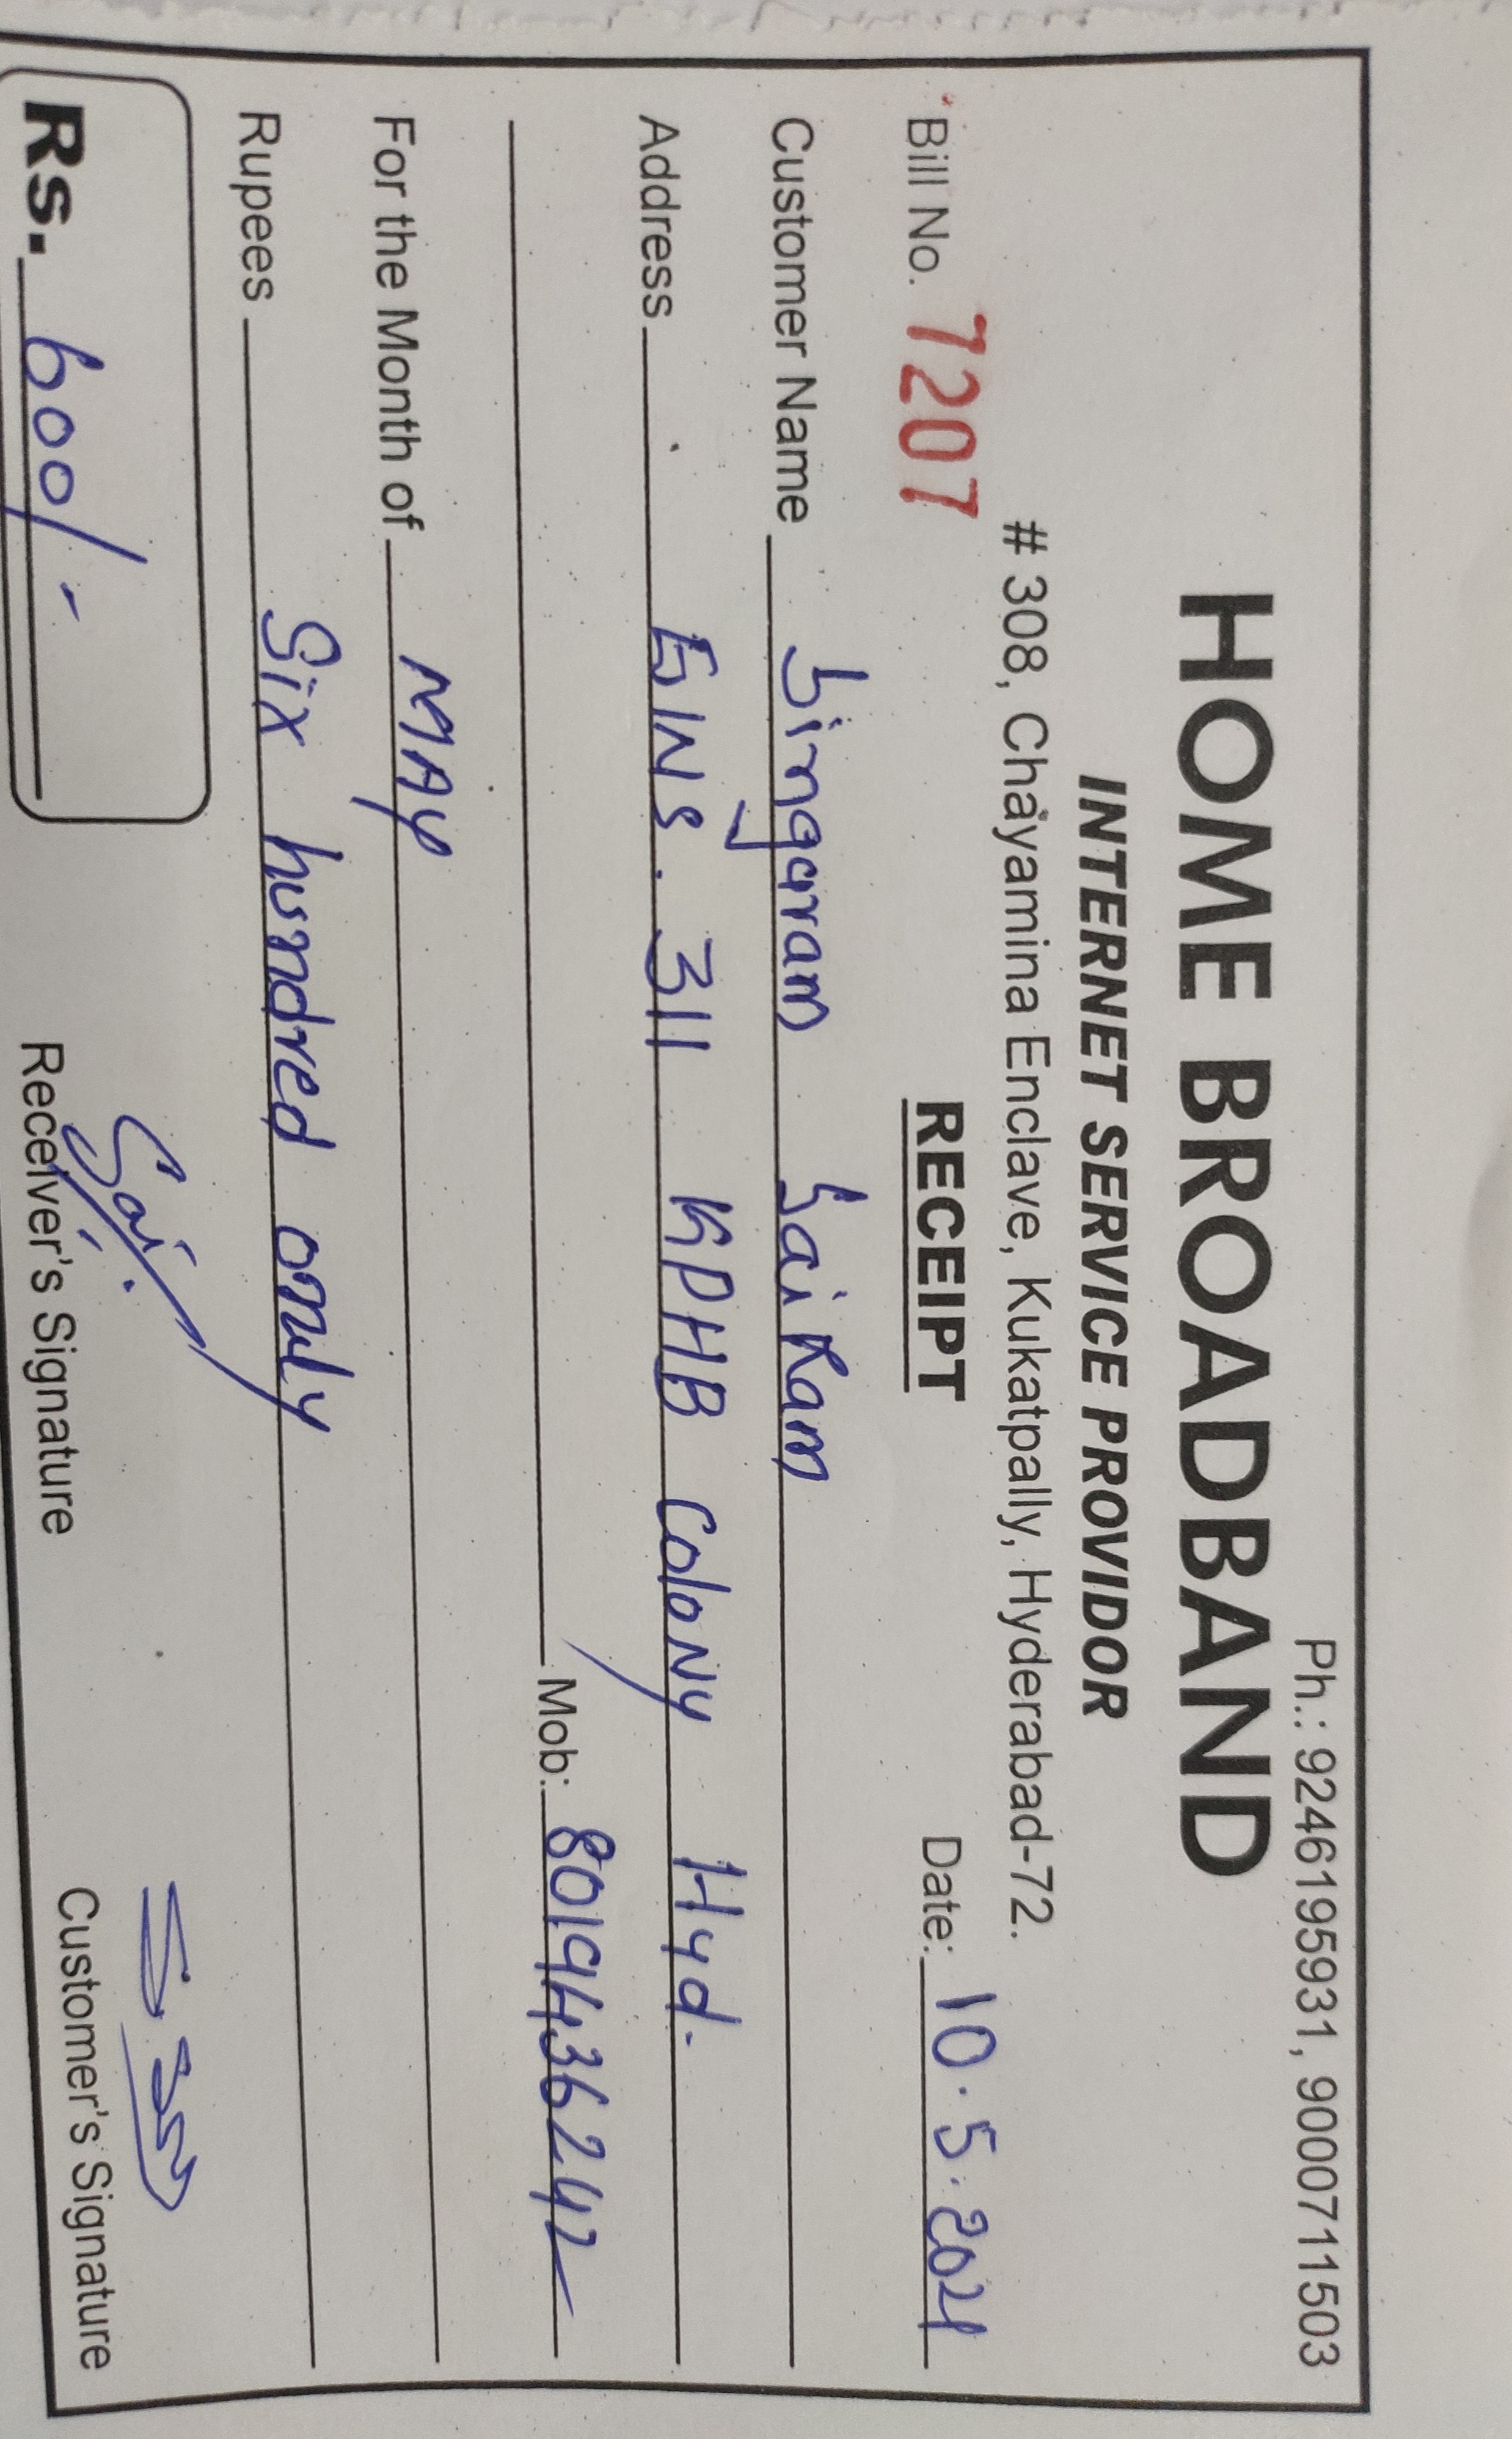 Ph.: 9246195931, 9000711503
HOME BROADBAND
INTERNET SERVICE PROVIDOR
# 308, Chayamina Enclave, Kukatpally, Hyderabad-72.
Bill No. 7207 RECEIPT Date: 10.5.2021
Customer Name Singaram Sai Ram
Address 311 KPHB Colony Hyd.
Mob: 8019436242
For the Month of MAY
Rupees Six hundred only
Rs. 600/-
Sai
Receiver's Signature Customer's Signature